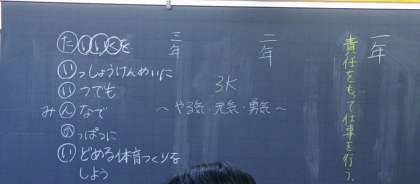 一年
責任をもって仕事を行う。
二年
3K
～やる気・元気・勇気～
三年
たいいくを
いっしょうけんめいに
いつでも
みんなで
かっぱつに
いどめる体育つくりを
しよう